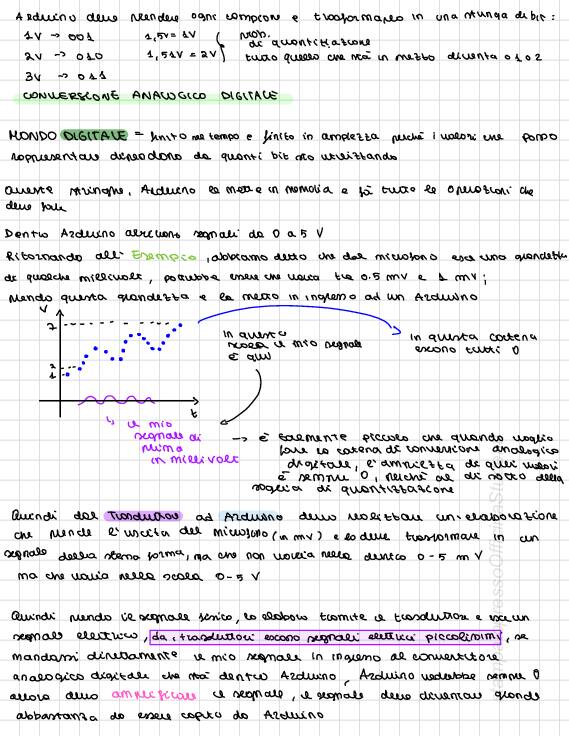 Arduino deve prendere ogni campione e trasformarlo in una stringa di bit:
1V → 001    1,5V = 1V    prob.
di quantizzazione
2V → 010    1,51V = 2V    tutto quello che sta in mezzo diventa 0 1 0 2
3V → 011
CONVERSIONE ANALOGICO DIGITALE
MONDO DIGITALE = finito nel tempo e finito in ampiezza perché i valori che posso
rappresentare dipendono da quanti bit sto utilizzando
Queste stringhe, Arduino le mette in memoria e fa tutte le operazioni che
deve fare
Dentro Arduino arrivano segnali da 0 a 5 V
Ritornando all' Esempio, abbiamo detto che dal microfono esce una grandezza
di qualche millivolt, potrebbe essere che varia tra 0.5 mV e 1 mV;
prendo questa grandezza e la metto in ingresso ad un Arduino
V
7
2
1
t
in questa
scala il mio segnale
è qui
in questa catena
escono tutti 0
↳ il mio
segnale di
prima
in millivolt
→ è talmente piccolo che quando voglio
fare la catena di conversione analogico
digitale, l'ampiezza di quei valori
è sempre 0, perché al di sotto della
soglia di quantizzazione
Quindi dal Trasduttore ad Arduino devo realizzare un'elaborazione
che prende l'uscita del microfono (in mV) e lo deve trasformare in un
segnale della stessa forma, ma che non varia nella dentro 0-5 mV
ma che varia nella scala 0-5 V
Quindi prendo il segnale fisico, lo elaboro tramite il trasduttore e esce un
segnale elettrico, dai trasduttori escono segnali elettrici piccolissimi, se
mandassi direttamente il mio segnale in ingresso al convertitore
analogico digitale che sta dentro Arduino, Arduino vedrebbe sempre 0
allora devo amplificare il segnale, il segnale deve diventare grande
abbastanza da essere capito da Arduino